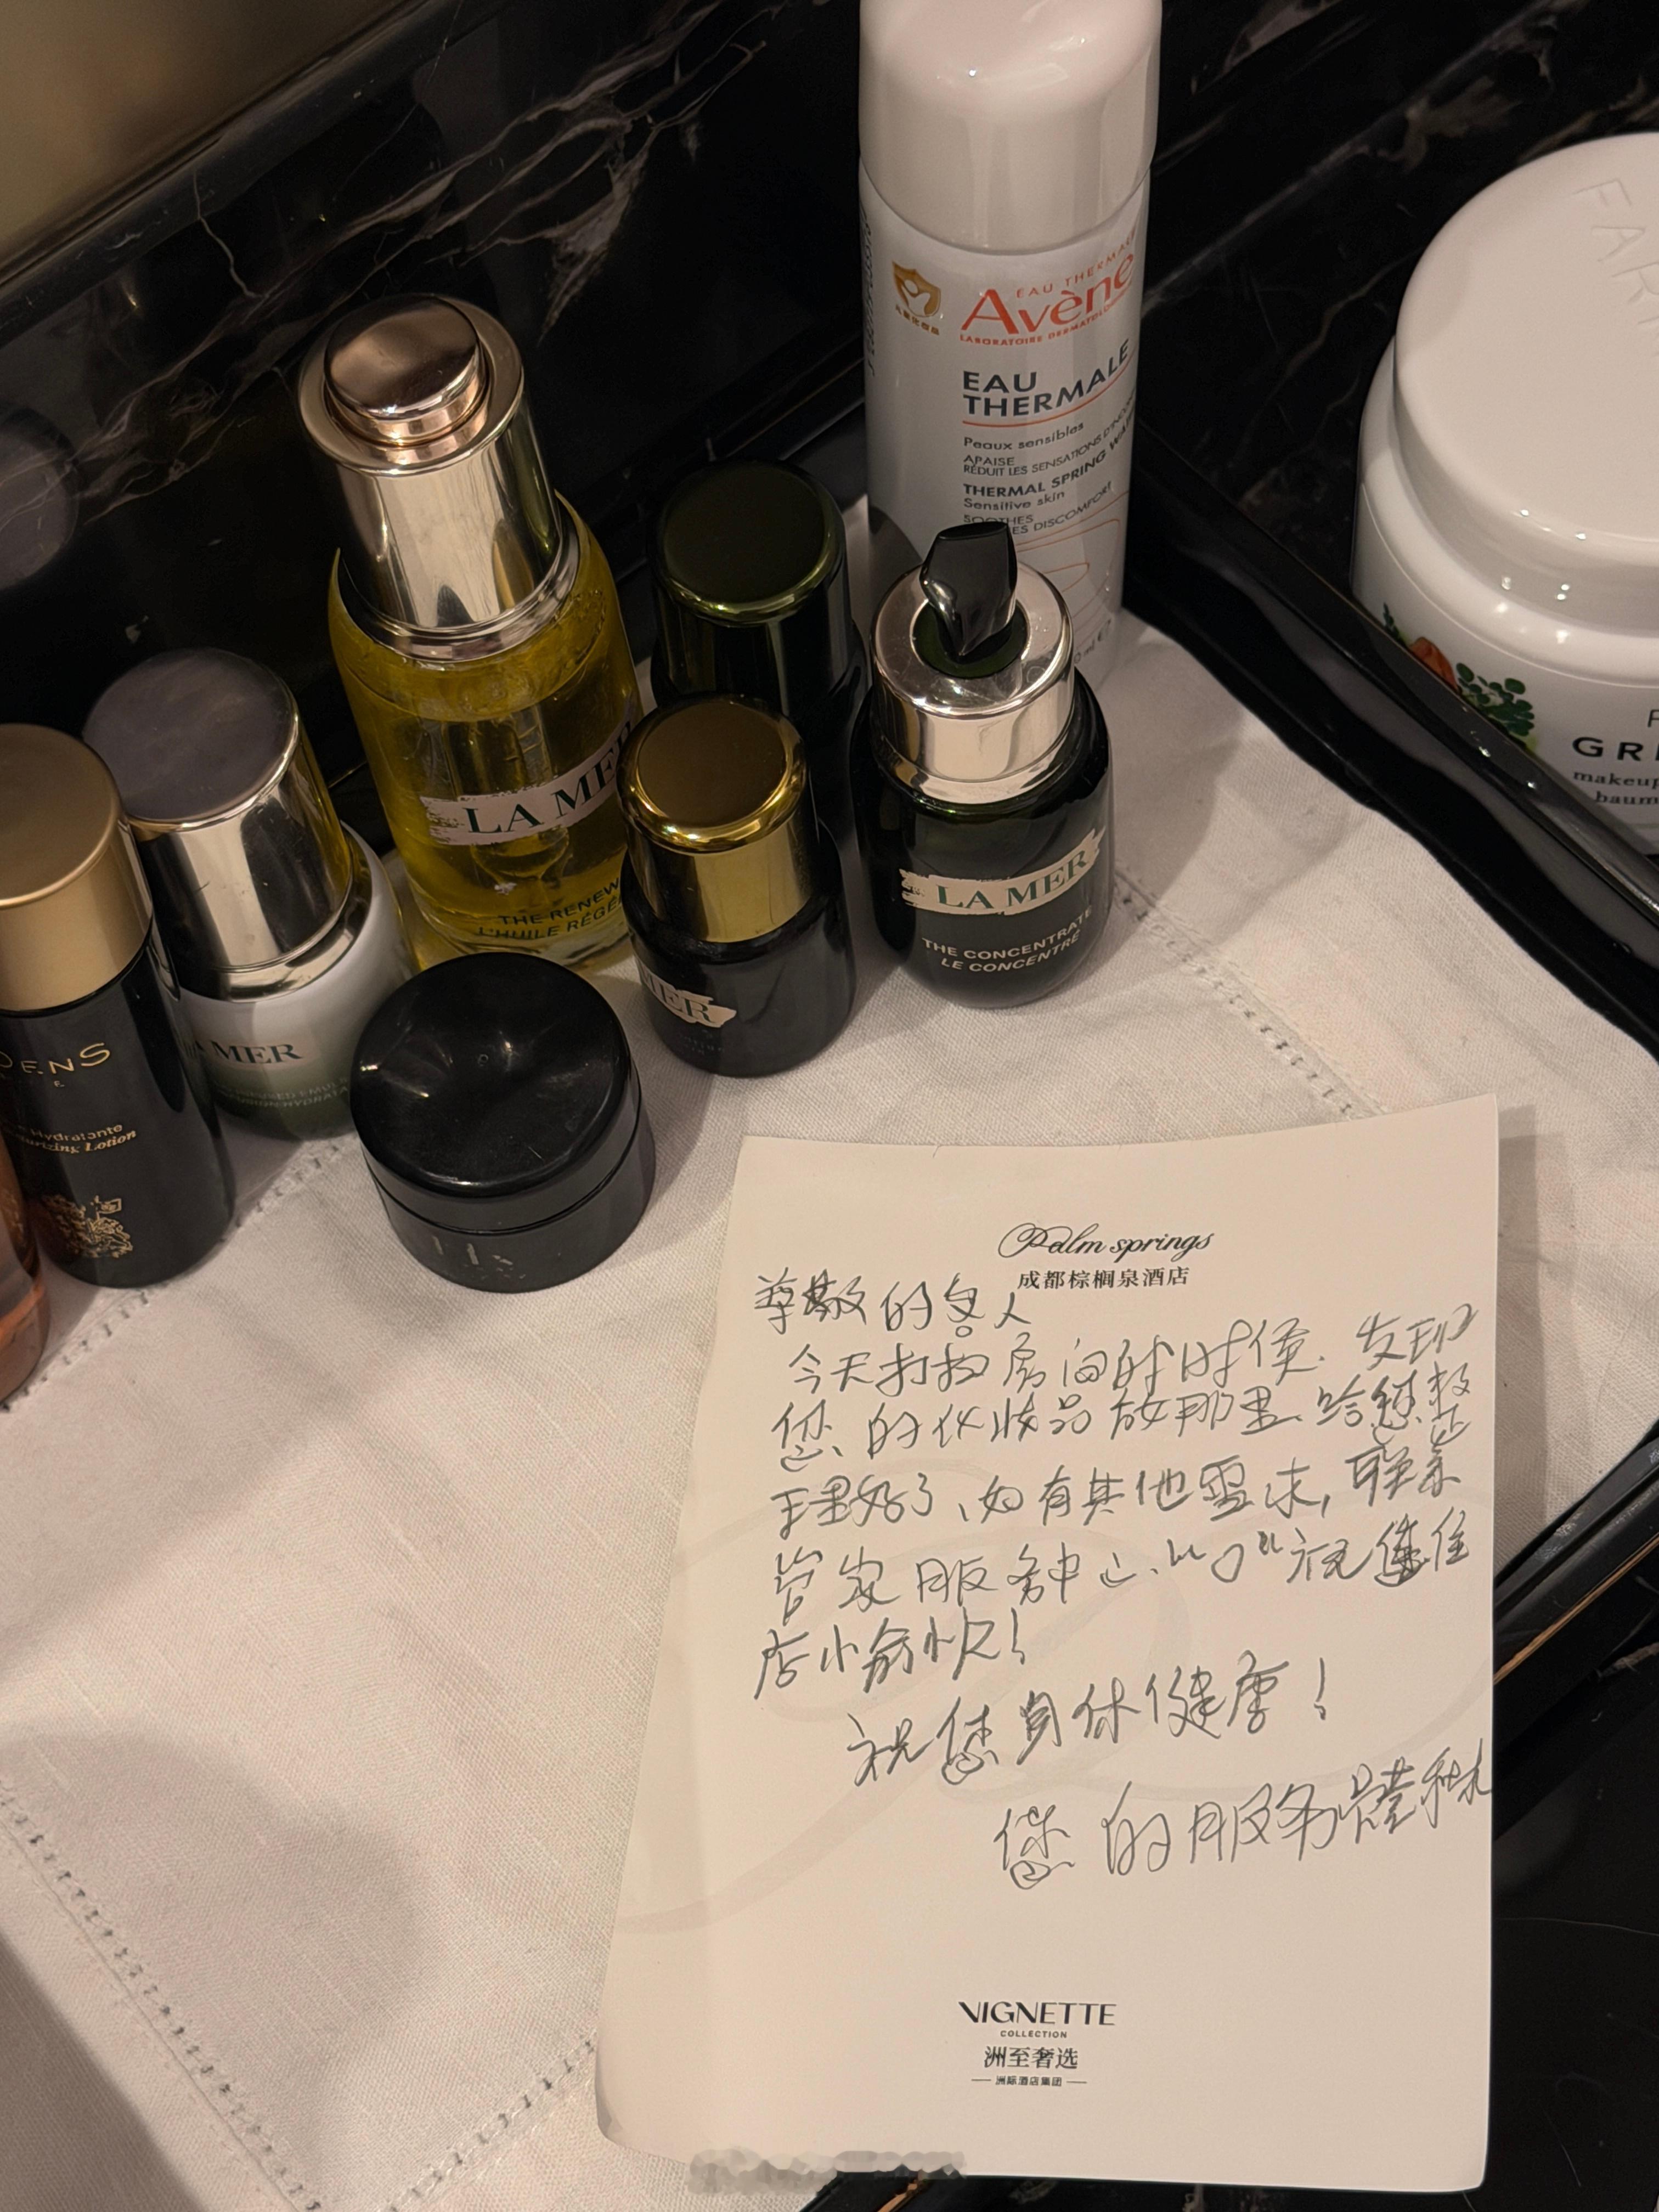 EAU THERMALE
Avène
LABORATOIRE DERMATOLOGIQUE
EAU
THERMALE
Peaux sensibles
APAISE
RÉDUIT LES SENSATIONS D'INCON
THERMAL SPRING WAT
Sensitive skin
SOOTHES
ES DISCOMFORT
FARM
GRE
makeup
baum
LA MER
THE RENEW
L'HUILE RÉGÉ
LA MER
THE CONCENTRATE
LE CONCENTRÉ
MER
MER
DENS
Hydratante
urizing Lotion
HR
Palm springs
成都棕榈泉酒店
尊敬的客人
今天打扫房间的时候.发现
您的化妆品放那里、给您整
理好了、如有其他需求,联系
管家服务中心、"0"祝您住
店小愉快!
祝您身体健康!
您的服务员
VIGNETTE
COLLECTION
洲至奢选
洲际酒店集团